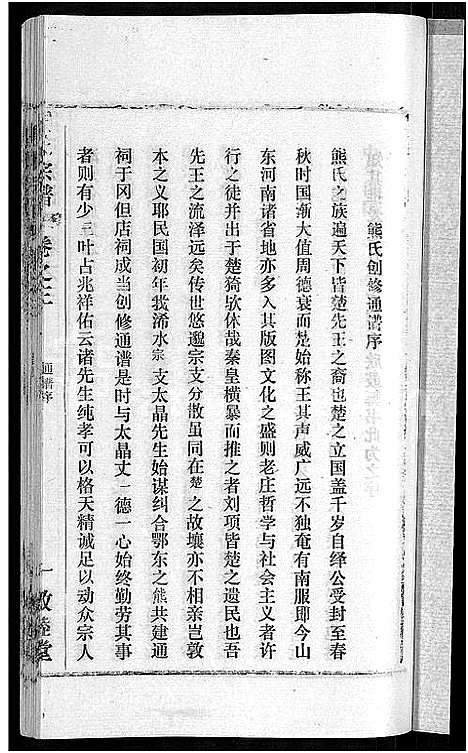 熊氏创修通谱序
熊氏之族遍天下皆楚先王之裔也楚之立国盖千岁自绎公受封至春
秋时国渐大值周德衰而楚始称王其声威广远不独奄有南服即今山
东河南诸省地亦多入其版图文化之盛则老庄哲学与社会主义者许
行之徒并出于楚猗欤休哉秦皇横暴而推之者刘项皆楚之遗民也吾
先王之流泽远矣传世悠邈宗支分散虽同在楚之故壤亦不相亲岂敦
本之义耶民国初年我浠水宗支太晶先生始谋纠合鄂东之熊共建通
祠于冈但店祠成当创修通谱是时与太晶丈一德一心始终勤劳其事
者则有少三叶占兆祥佑云诸先生纯孝可以格天精诚足以动众宗人
宗谱
卷之
通谱序
一
敦睦堂